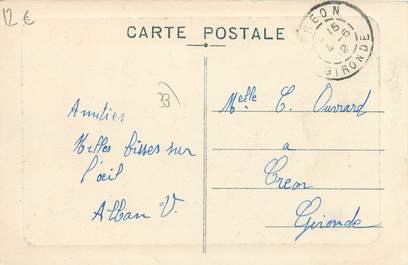 12 €
CARTE POSTALE
CREON
15
4 - 6
2
GIRONDE
33)
Amitiés
Milles bisses sur
l'oeil
Alban V.
Melle C. Ouvrard
a
Creon
Gironde